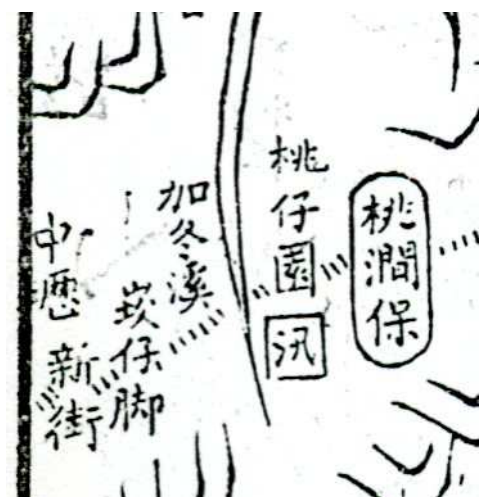 桃澗保
桃仔園汛
加冬溪
崁仔脚
中壢新街